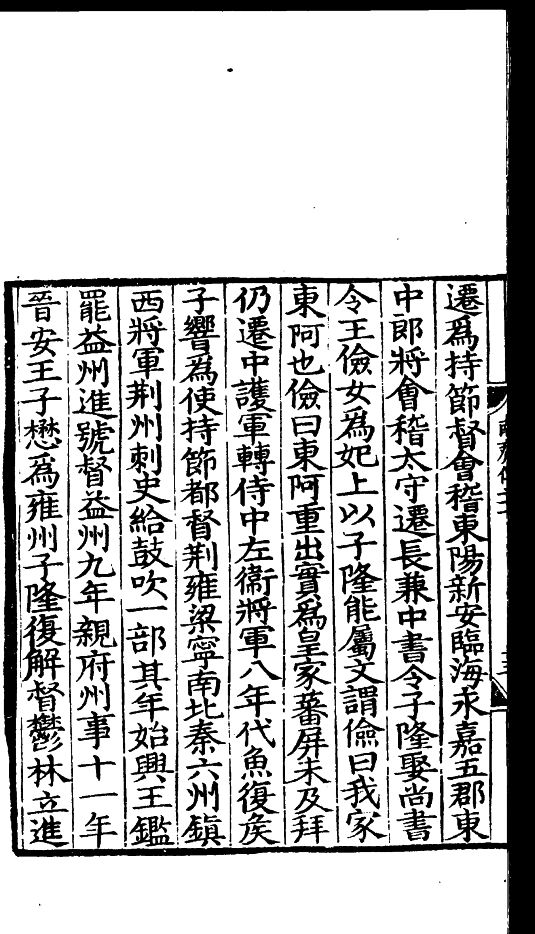 遷爲持節督會稽東陽新安臨海永嘉五郡東
中郎將會稽太守遷長兼中書令子隆娶尚書
令王儉女爲妃上以子隆能屬文謂儉曰我家
東阿也儉曰東阿重出實爲皇家蕃屏未及拜
仍遷中護軍轉侍中左衞將軍八年代魚復矦
子響爲使持節都督荆雍梁寧南北秦六州鎮
西將軍荆州刺史給鼓吹一部其年始興王鑑
罷益州進號督益州九年親府州事十一年
晉安王子懋爲雍州子隆復解督鬱林立進